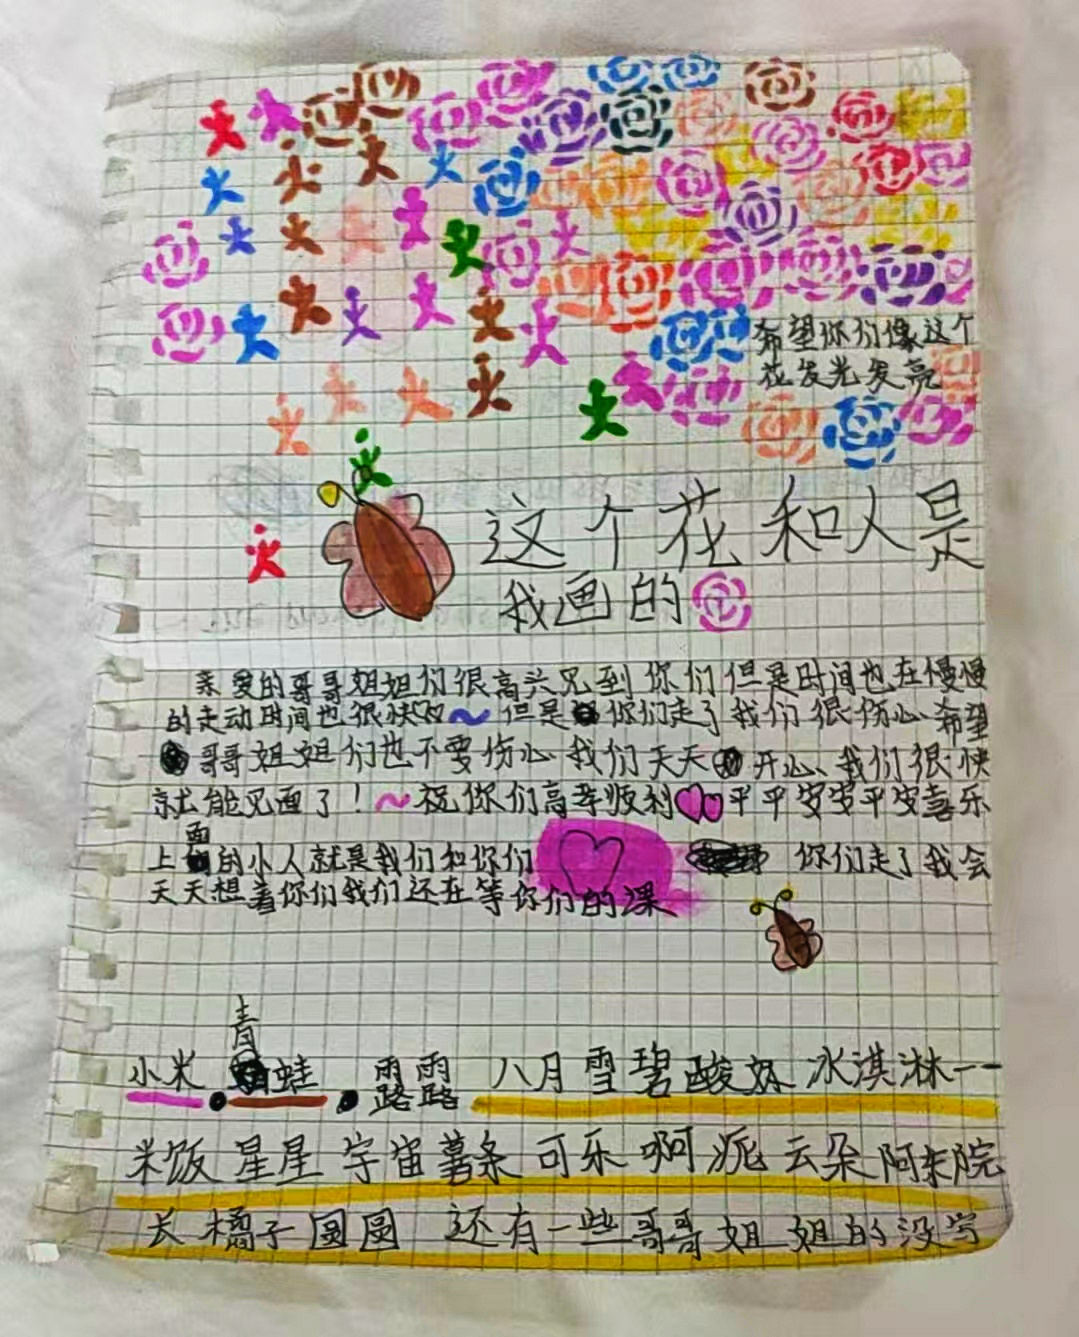 希望你们像这个
花发光发亮
这个花和人是
我画的
亲爱的哥哥姐姐们很高兴见到你们但是时间也在慢慢
的走动时间也很快的~但是你们走了我们很伤心希望
哥哥姐姐们也不要伤心、我们天天开心、我们很快
就能见面了!~祝你们高考顺利平平安安平安喜乐
上面的小人就是我们和你们 你们走了我会
天天想着你们我们还在等你们的课
小米·青蛙·露露 八月雪碧酸奶冰淇淋一一
米饭星星宇宙薯条可乐啊派云朵阿朱院
长橘子圆圆 还有一些哥哥姐姐的没写